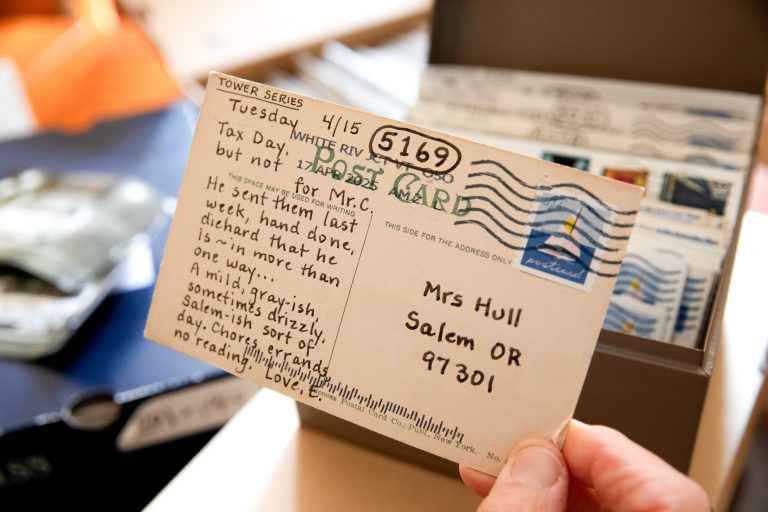 TOWER SERIES
Tuesday 4/15
5169
Tax Day,
but not for Mr. C.
He sent them last
week, hand done,
diehard that he
is ~ in more than
one way...
A mild, gray-ish,
sometimes drizzly,
Salem-ish sort of
day. Chores, errands,
no reading. Love, E.
WHITE RIV JCT VT 050
17 APR 2025 AM
POST CARD
THIS SPACE MAY BE USED FOR WRITING
THIS SIDE FOR THE ADDRESS ONLY
postcard
Mrs Hull
Salem OR
97301
Success Postal Card Co., Publ., New York. No.